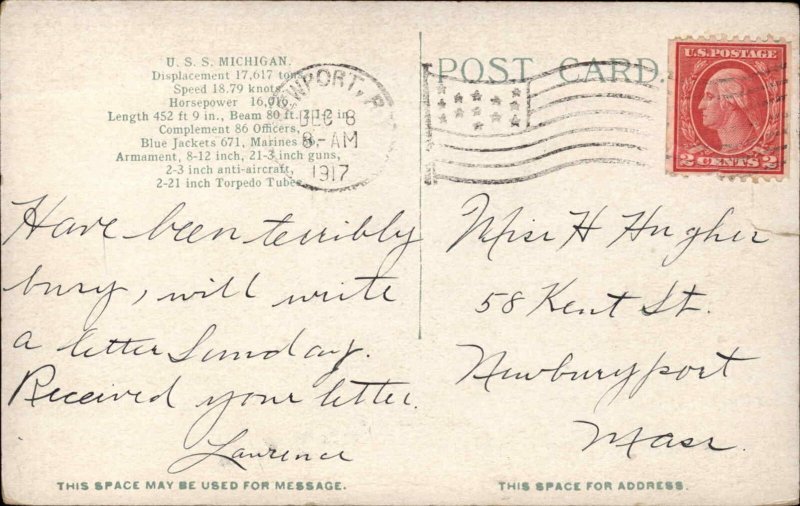 U. S. S. MICHIGAN.
Displacement 17,617 tons
Speed 18.79 knots
Horsepower 16,016
Length 452 ft 9 in., Beam 80 ft. 2 1-2 in.
Complement 86 Officers,
Blue Jackets 671, Marines
Armament, 8-12 inch, 21-3 inch guns,
2-3 inch anti-aircraft,
2-21 inch Torpedo Tubes
NEWPORT, R.
DEC 8
8-AM
1917
POST CARD.
U.S. POSTAGE
2 CENTS 2
Have been terribly
busy, will write
a letter Sunday.
Received your letter.
Lawrence
Miss H Hughes
58 Kent St.
Newburyport
Mass.
THIS SPACE MAY BE USED FOR MESSAGE.
THIS SPACE FOR ADDRESS.